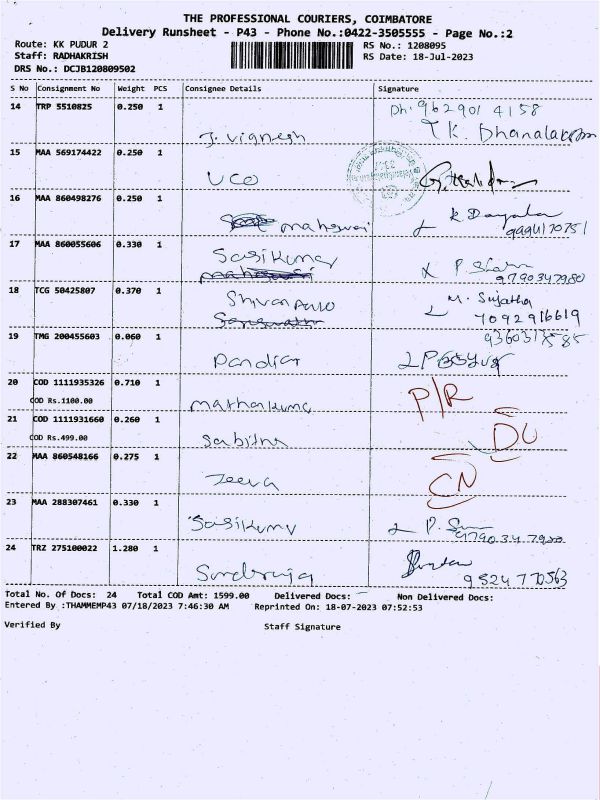 THE PROFESSIONAL COURIERS, COIMBATORE
Delivery Runsheet - P43 - Phone No.:0422-3505555 - Page No.:2
Route: KK PUDUR 2 RS No.: 1208095
Staff: RADHAKRISH RS Date: 18-Jul-2023
DRS No.: DCJB120809502
S No Consignment No Weight PCS Consignee Details Signature
14 TRP 5510825 0.250 1 Ph: 962901 4158
J. Vignesh T.K. Dhanalakshmi
15 MAA 569174422 0.250 1
UCO
16 MAA 860498276 0.250 1 K Dayala
maheswari 9994170751
17 MAA 860055606 0.330 1 Sasikumar P. 
maheswari 9790347980
18 TCG 50425807 0.370 1 M. Sujatha
7092916619
19 TMG 200455603 0.060 1 9360313585
Pandiar
20 COD 1111935326 0.710 1 P/R
COD Rs.1100.00
21 COD 1111931660 0.260 1
COD Rs.499.00 Sabitha
22 MAA 860548166 0.275 1 CN
Jeeva
23 MAA 288307461 0.330 1
Sasikumar
24 TRZ 275100022 1.280 1
Total No. Of Docs: 24 Total COD Amt: 1599.00 Delivered Docs: Non Delivered Docs:
Entered By :THAMMEMP43 07/18/2023 7:46:30 AM Reprinted On: 18-07-2023 07:52:53
Verified By Staff Signature